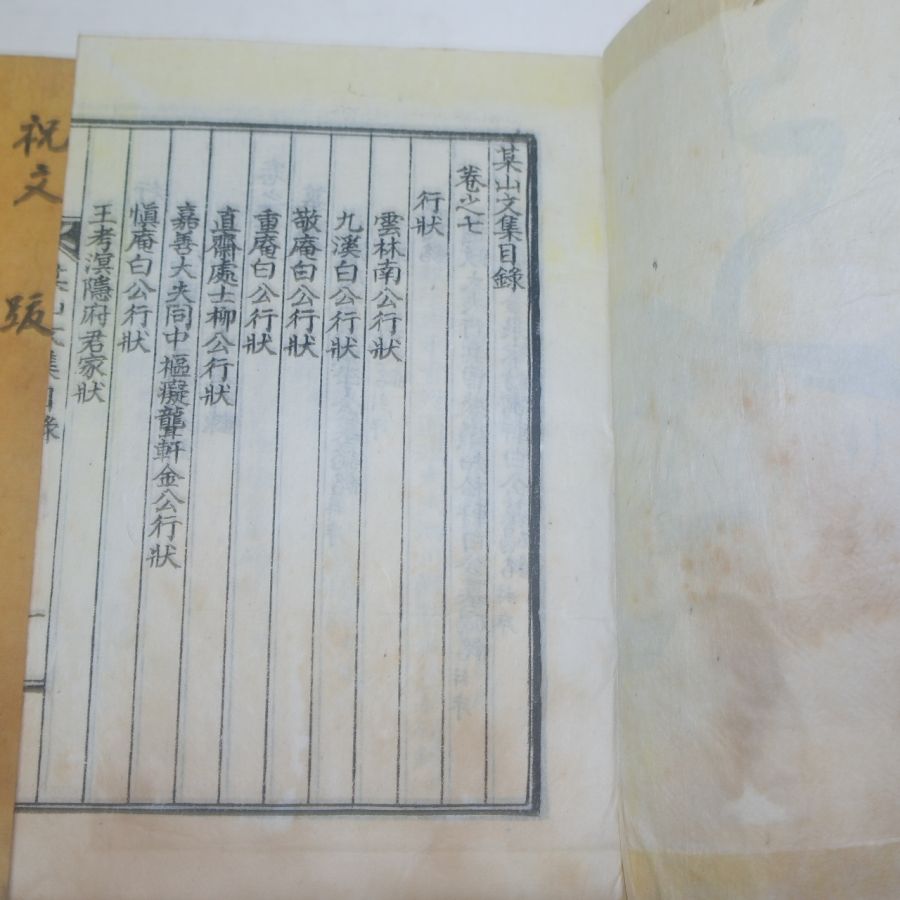 某山文集目錄
卷之七
行狀
雲林南公行狀
九溪白公行狀
敬庵白公行狀
重庵白公行狀
直齋處士柳公行狀
嘉善大夫同中樞癡聾軒金公行狀
愼庵白公行狀
王考溟隱府君家狀
祝文